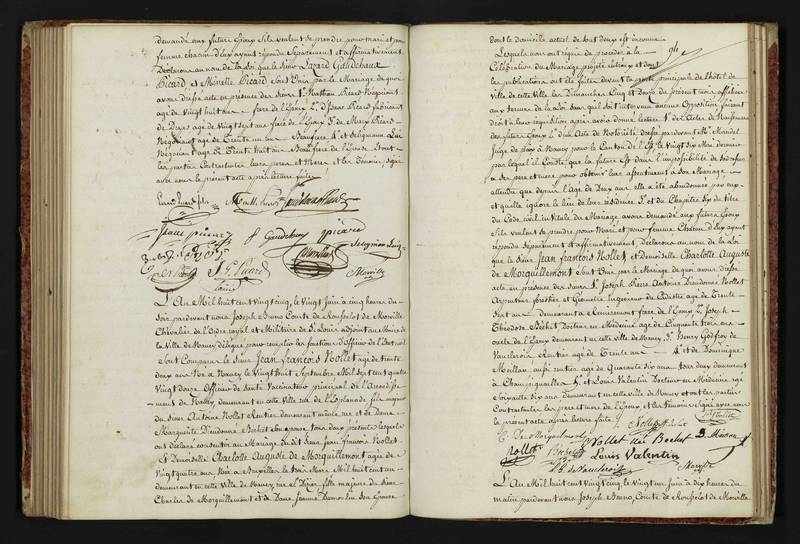 demandé aux futurs Epoux s'ils veulent se prendre pour mari et pour
femme chacun d'eux ayant répondu séparément et affirmativement
Déclarons au nom de la loi que le sieur Lazard Gaudchaux
Picard et Minette Picard sont unis par le Mariage de quoi
avons dressé acte en présence des sieurs 1° Nathan Picard Négociant
âgé de Vingt huit ans frère de l'Epoux 2° Isaac Picard fabricant
de Draps âgé de Vingt sept ans frère de l'Epoux 3° de Mary Picard
Négociant âgé de trente un ans Beaufrère 4° et Seligmann Luig
Négociant âgé de trente huit ans Beau frère de l'Epouse. Dont
les parties Contractantes leurs pères et Mères et les Témoins signé
avec nous le présent acte après lecture faite
Isaac picard
Gaudchaux picard
Seligman Luig
J. G. Picard
Morville
L'An Mil huit cent vingt cinq, le Vingt Juin à cinq heures du
Soir pardevant nous Joseph Bruno Comte de Rousselot de Morville
Chevalier de l'Ordre royal et Militaire de St Louis adjoint au Maire de
la Ville de Nancy délégué pour remplir les fonctions d'Officier de l'Etat civil
Sont Comparus le Sieur Jean François Nollet âgé de trente
deux ans Né à Nancy le Vingt huit Septembre Mil sept cent quatre
Vingt douze Officier de Santé Vaccinateur principal de l'Arrondisse-
ment de Nancy, demeurant en cette Ville rue de l'Esplanade fils majeur
du Sieur Antoine Nollet Rentier demeurant même rue et de Dame
Marguerite Dieudonné Bechet son epouse tous deux présents lesquels
ont déclaré consentir au Mariage du dit Sieur Jean François Nollet
Et Demoiselle Charlotte Auguste de Morquillemont âgée de
Vingt quatre ans Née à Bruxelles le trois Mars Mil huit cent un
demeurant en cette Ville de Nancy rue St Dizier fille majeure du Sieur
Charles de Morquillemont et de Dame Jeanne Damoulin Son Epouse
dont le domicile actuel de tout deux est inconnu
Lesquels nous ont requis de procéder à la
Célébration du Mariage projeté entre eux et dont
les publications ont été faites devant la porte principale de l'hôtel de
Ville de cette Ville les Dimanches Cinq et Douze du présent mois affichées
aux termes de la loi sans qu'il soit survenu aucune Opposition faisant
droit à leur réquisition après avoir donné lecture 1° des Actes de Naissance
des futurs Epoux 2° d'un Acte de Notoriété dressé pardevant Mr Mandel
Juge de paix à Nancy pour le Canton de l'Est, le Vingt six Mai dernier
par lequel il Conste que la future est dans l'impossibilité de
ses père et mère pour obtenir leur assentiment à son Mariage
attendu que depuis l'âge de Deux ans elle a été abandonnée par eux
et qu'elle ignore le lieu de leur résidence 3° et du Chapitre six du titre
du Code civil intitulé du Mariage avons demandé aux futurs Epoux
s'ils veulent se prendre pour Mari et pour femme Chacun d'eux ayant
répondu séparément et affirmativement Déclarons au nom de la loi
que le Sieur Jean François Nollet, et Demoiselle Charlotte Auguste
de Morquillemont sont unis par le Mariage de quoi avons dressé
acte en présence des sieurs 1° Joseph Pierre Antoine Dieudonné Nollet
Arpenteur forestier et Géomètre Ingénieur du Cadastre âgé de trente
Sept ans demeurant à Remiremont frère de l'Epoux 2° Joseph
Théodore Béchet Docteur en Médecine âgé de Cinquante trois ans
oncle de l'Epoux demeurant en cette Ville de Nancy 3° Henry Godfroy de
Vaucleroix Rentier âgé de Trente ans 4° et Dominique
Moitan aussi rentier âgé de Quarante six ans tous deux demeurant
à Champigneulles 5° et Louis Valentin Docteur en Médecine âgé
Soixante six ans demeurant en cette Ville de Nancy et ont les parties
Contractantes les père et mère de l'Epoux et les témoins signé avec nous
le présent acte après lecture faite
Nollet
Nollet née Bechet
Louis Valentin
Morville
L'An Mil huit cent vingt cinq, le Vingt un Juin à dix heures du
matin pardevant nous Joseph Bruno, Comte de Rousselot de Morville